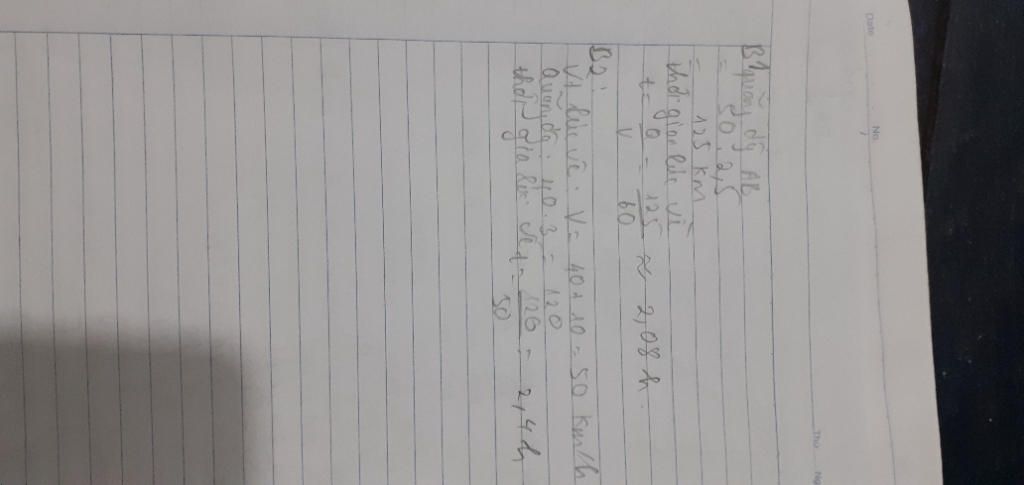 Date
No
Thứ
B1 quãng đg AB
= 50 . 2,5
= 125 km
thời gian lúc về
t = Q/v = 125/60 ≈ 2,08 h.
B2:
Vt lúc về : V = 40 + 10 = 50 km/h
Quãng đg : 40 . 3 = 120
thời gian lúc về t = 120/50 = 2,4 h